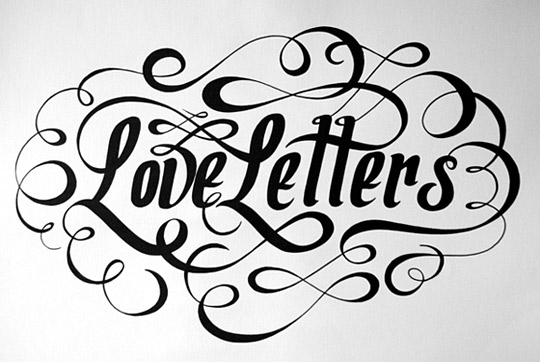 Love Letters